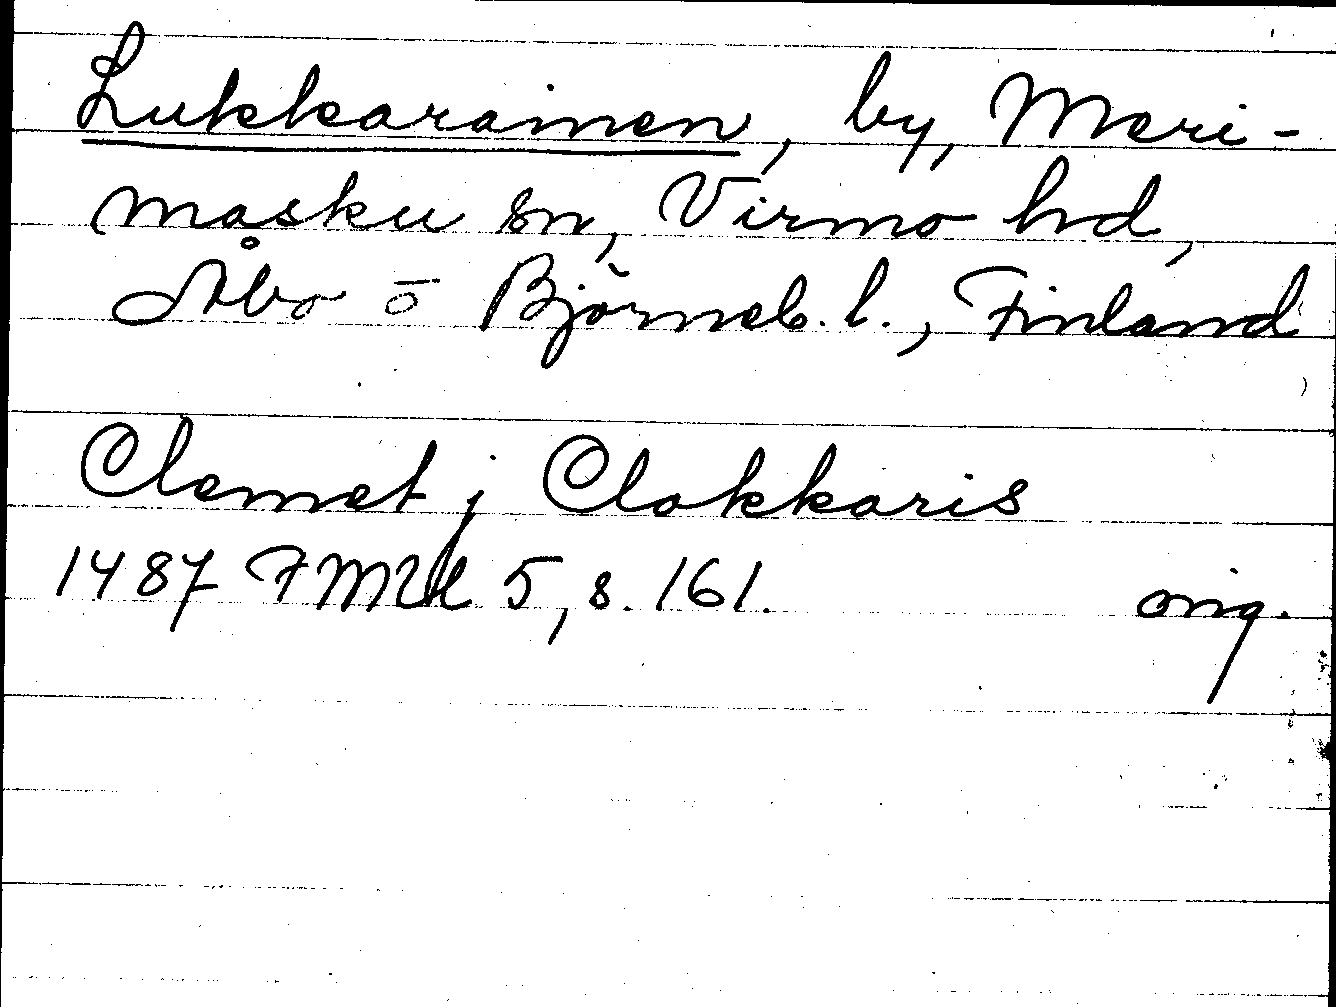 Lukkarainen, by, Meri-
masku sn, Virmo hd,
Åbo o Björneb. l., Finland
Clemet j Clokkaris
1487 FMU 5, s. 161. orig.